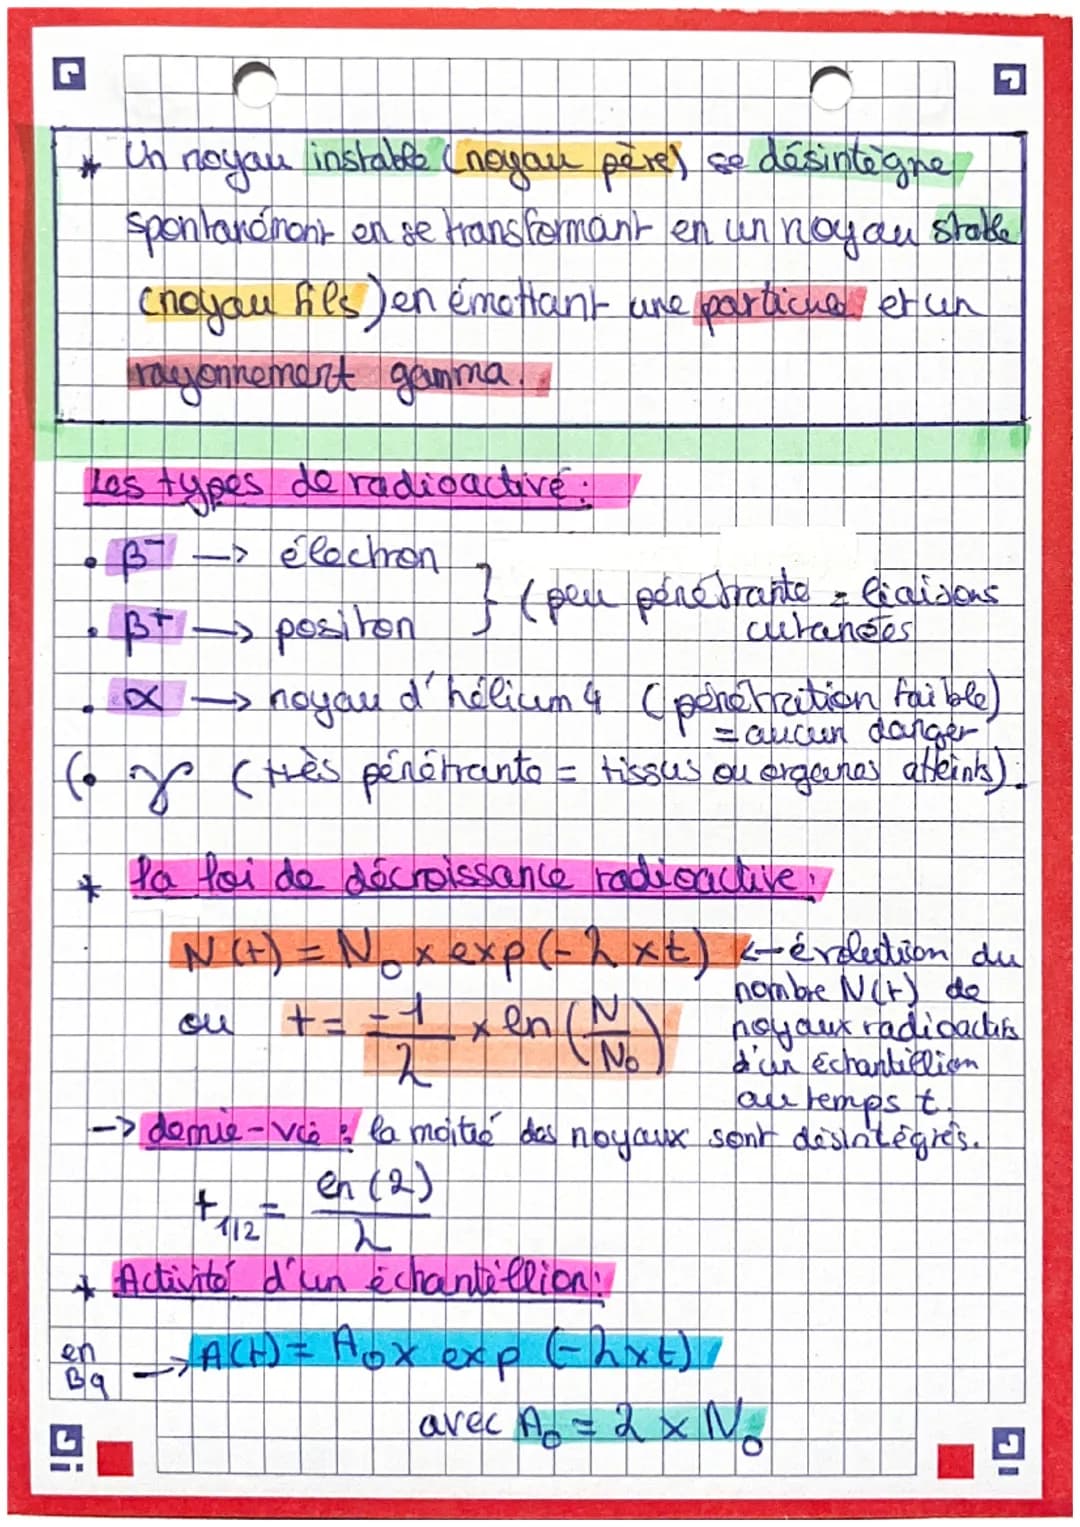 * Un noyau instable (noyau père) se désintègre
spontanément en se transformant en un noyau stable
(noyau fils) en émettant une particule et un
rayonnement gamma.
Les types de radioactivé :
• β⁻ → électron
• β⁺ → positon
} (peu pénétrante = liaisons
cutanées
• α → noyau d'hélium 4 (pénétration faible)
= aucun danger
(• γ (très pénétrante = tissus ou organes atteints).
* la loi de décroissance radioactive :
N(t) = N₀ × exp(-λ × t) ← évolution du
nombre N(t) de
noyaux radioactifs
d'un échantillion
au temps t.
ou t = -1/λ × ln(N/N₀)
→ demie-vie : la moitié des noyaux sont désintégrés.
t₁/₂ = ln(2)/λ
* Activité d'un échantillion :
en
Bq → A(t) = A₀ × exp(-λ×t)
avec A₀ = λ × N₀